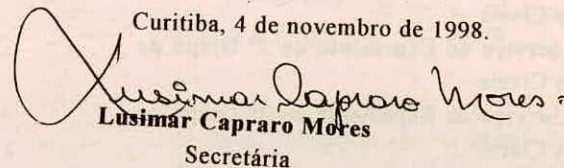 Curitiba, 4 de novembro de 1998.
Lusimar Capraro Mores
Lusimar Capraro Mores
Secretária